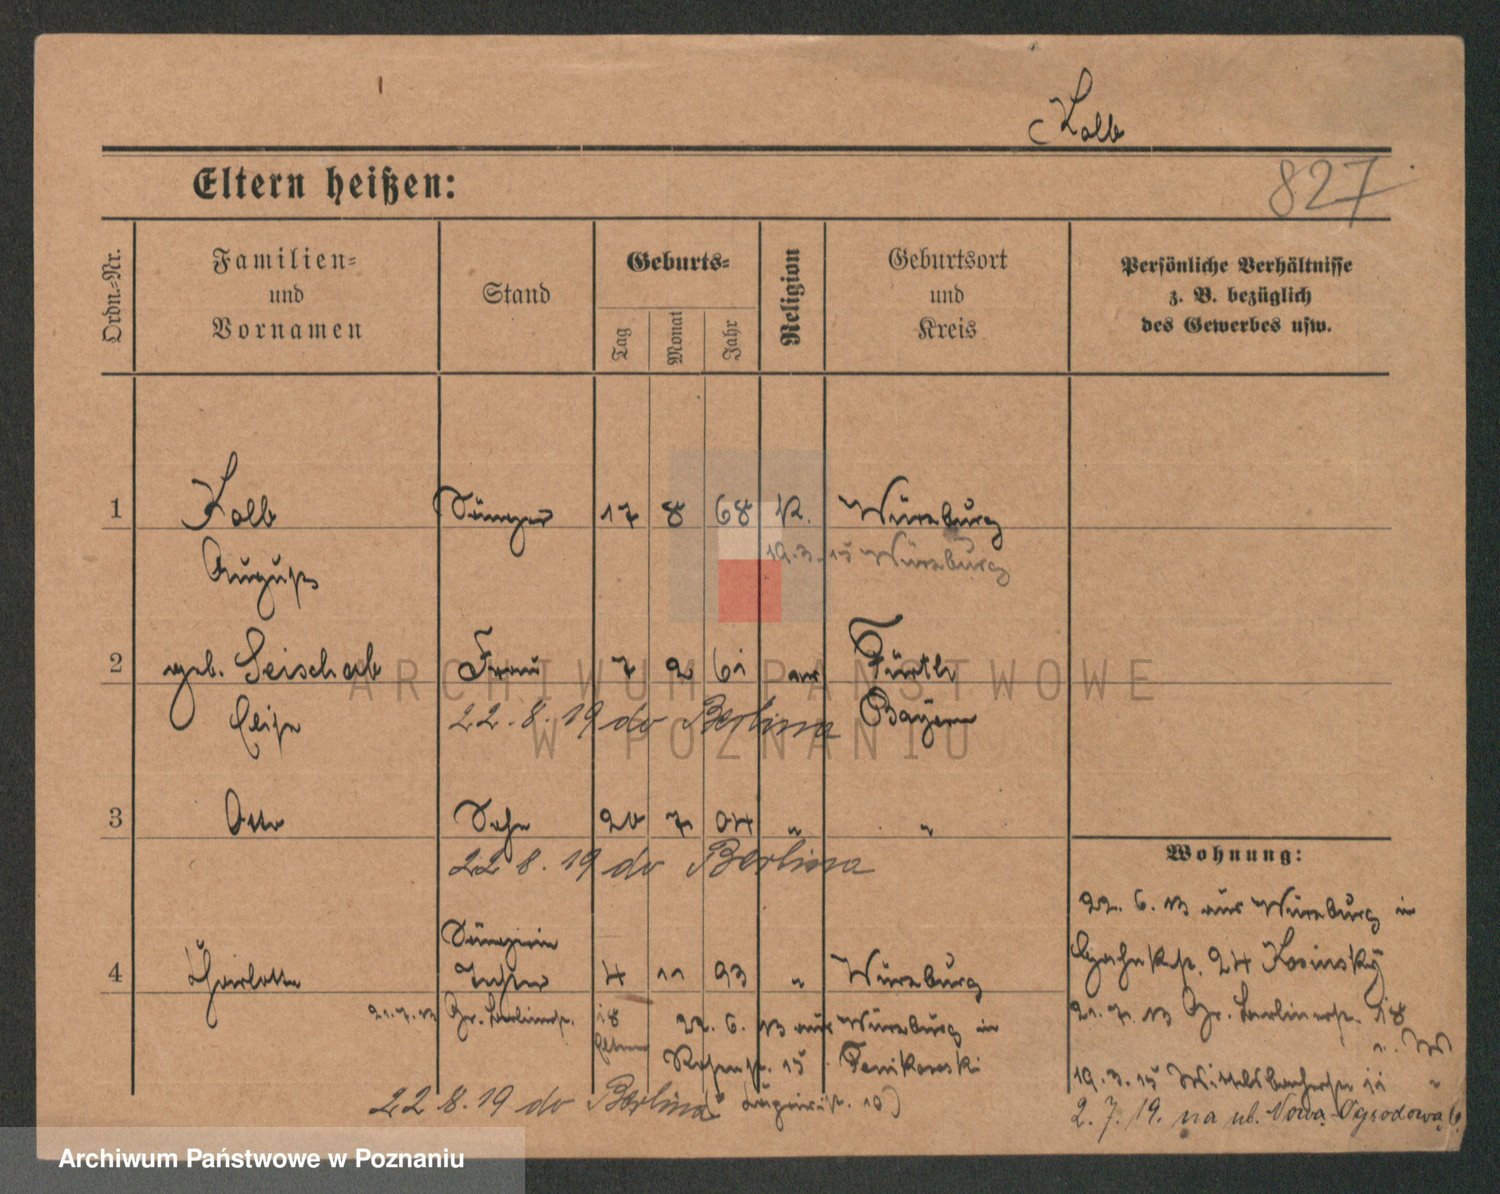 Kolb
Eltern heißen:
827
Ordn.=Nr.
Familien=
und
Vornamen
Stand
Geburts=
Tag
Monat
Jahr
Religion
Geburtsort
und
Kreis
Persönliche Verhältnisse
z. B. bezüglich
des Gewerbes usw.
1 Kolb Sänger 17 8 68 K. Würzburg
August 19.3.15 Würzburg
2 geb. Geischab Frau 7 2 61 ev Fürth
Elise 22.8.19 do Berlina Bayern
3 Otto Sohn 20 7 04 " "
22 8.19 do Berlina
Wohnung:
22. 6. 13 aus Würzburg in
24 Kosinsky
21. 7. 13 Gr. Berlinerstr. 18
19.3.15 Wittelsbacherstr. 11 "
2.7.19. na ul. Nowa-Ogrodowa 6.
4 Charlotte Sängerin
Tochter 4 11 93 " Würzburg
21.7.13 Gr. Berlinerstr. 18 Eltern
22. 6. 13 aus Würzburg in
15
22 8.19 do Berlina
ARCHIWUM PAŃSTWOWE
W POZNANIU
Archiwum Państwowe w Poznaniu